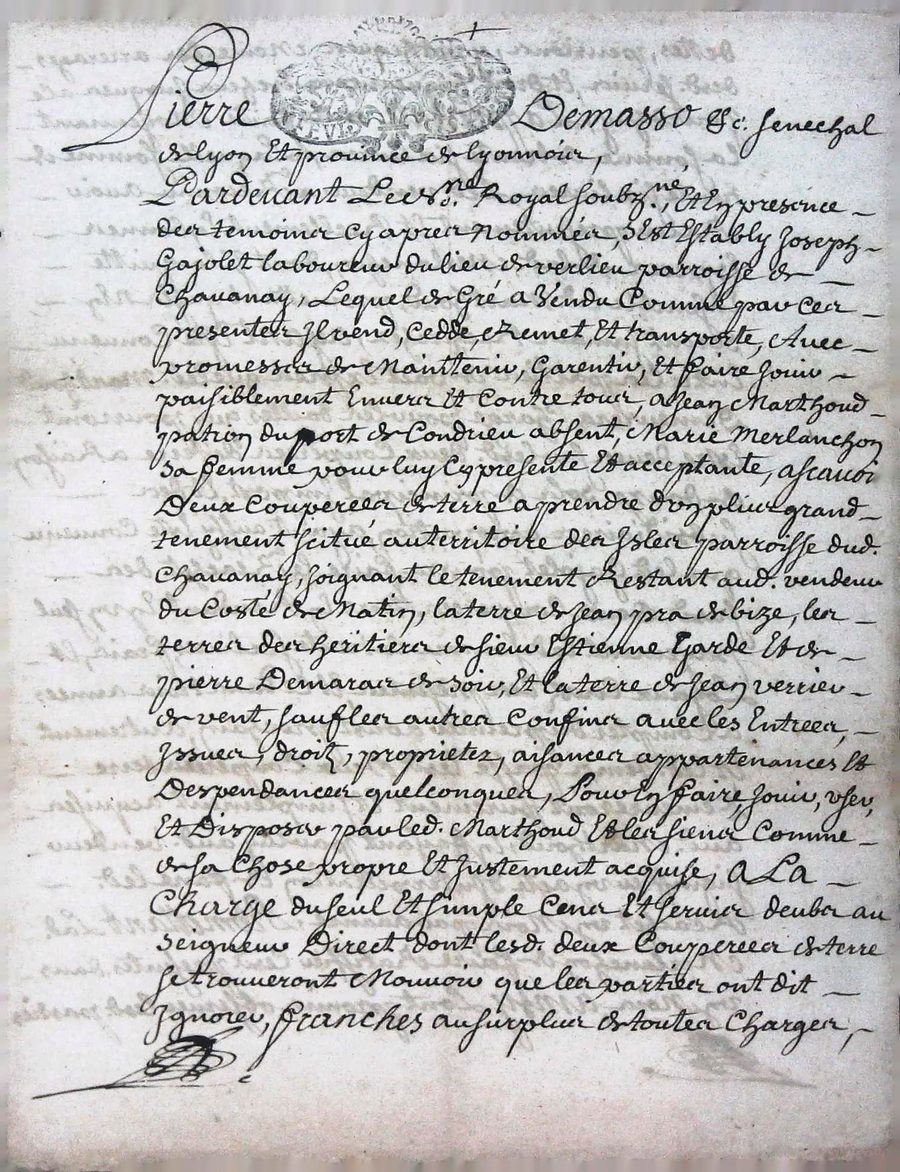 Pierre Demasso &c. senechal
de lyon Et province de lyonnois,
Pardevant Le No.re Royal soubz.né, Et En presence
des temoins Cy apres Nommés, s'Est Estably Joseph
Gajolet laboureur du lieu de verlieu parroisse de
Chavanay, Lequel de Gré a Vendu Comme par Ces
presentes Jl vend, Cedde, Remet, Et transporte, Avec
promesses de Maintenir, Garentir, Et faire Jouir
paisiblement Envers Et Contre tous, a Jean Marthoud
patron du port de Condrieu absent, Marie Merlanchon
sa femme pour luy Cy presente Et acceptante, ascavoir
Deux Couperées de terre a prendre d'un plus grand
tenement scitué au territoire des Isles parroisse dud.
Chavanay, Joignant le tenement Restant aud. vendeur
du Costé de Matin, la terre de Jean pra de bize, les
terres des heritiers de sieur Estienne Garde Et de
pierre Demaras de soir, Et la terre de Jean verrier
de vent, sauf les autres Confins avec les Entrées,
Issues, droitz, proprietez, aisances appartenances Et
Despendances quelconques, Pour En faire, Jouir, user,
Et Disposer par led. Marthoud Et les siens Comme
de sa Chose propre Et Justement acquise, A La
Charge du seul Et simple Cens Et servis deubs au
seigneur Direct dont lesd. deux Couperées de terre
se trouveront Mouvoir que les parties ont dit
Ignorer, franches au surplus de toutes Charges,